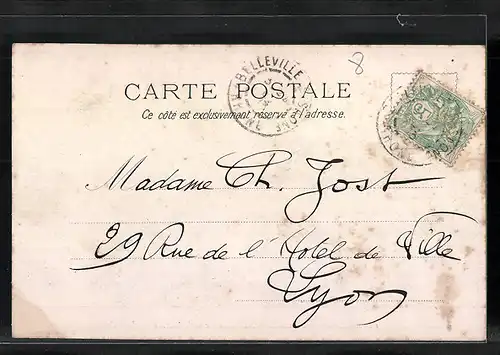 8
BELLEVILLE
RHONE
CARTE POSTALE
Ce côté est exclusivement réservé à l'adresse.
Madame Ch. Jost
29 Rue de l'Hotel de Ville
Lyon